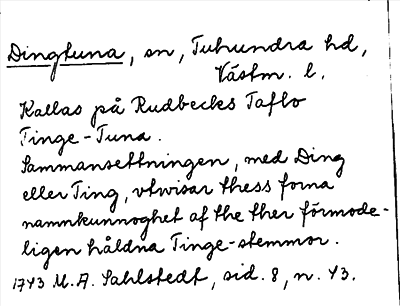 Dingtuna, sn, Tuhundra hd,
Västm. l.
Kallas på Rudbecks Taflo
Tinge-Tuna.
Sammansettningen, med Ding
eller Ting, vtwisar thess forna
namnkunnoghet af the ther förmode-
ligen håldna Tinge-stemmor.
1743 M. A. Sahlstedt, sid. 8, n. 43.